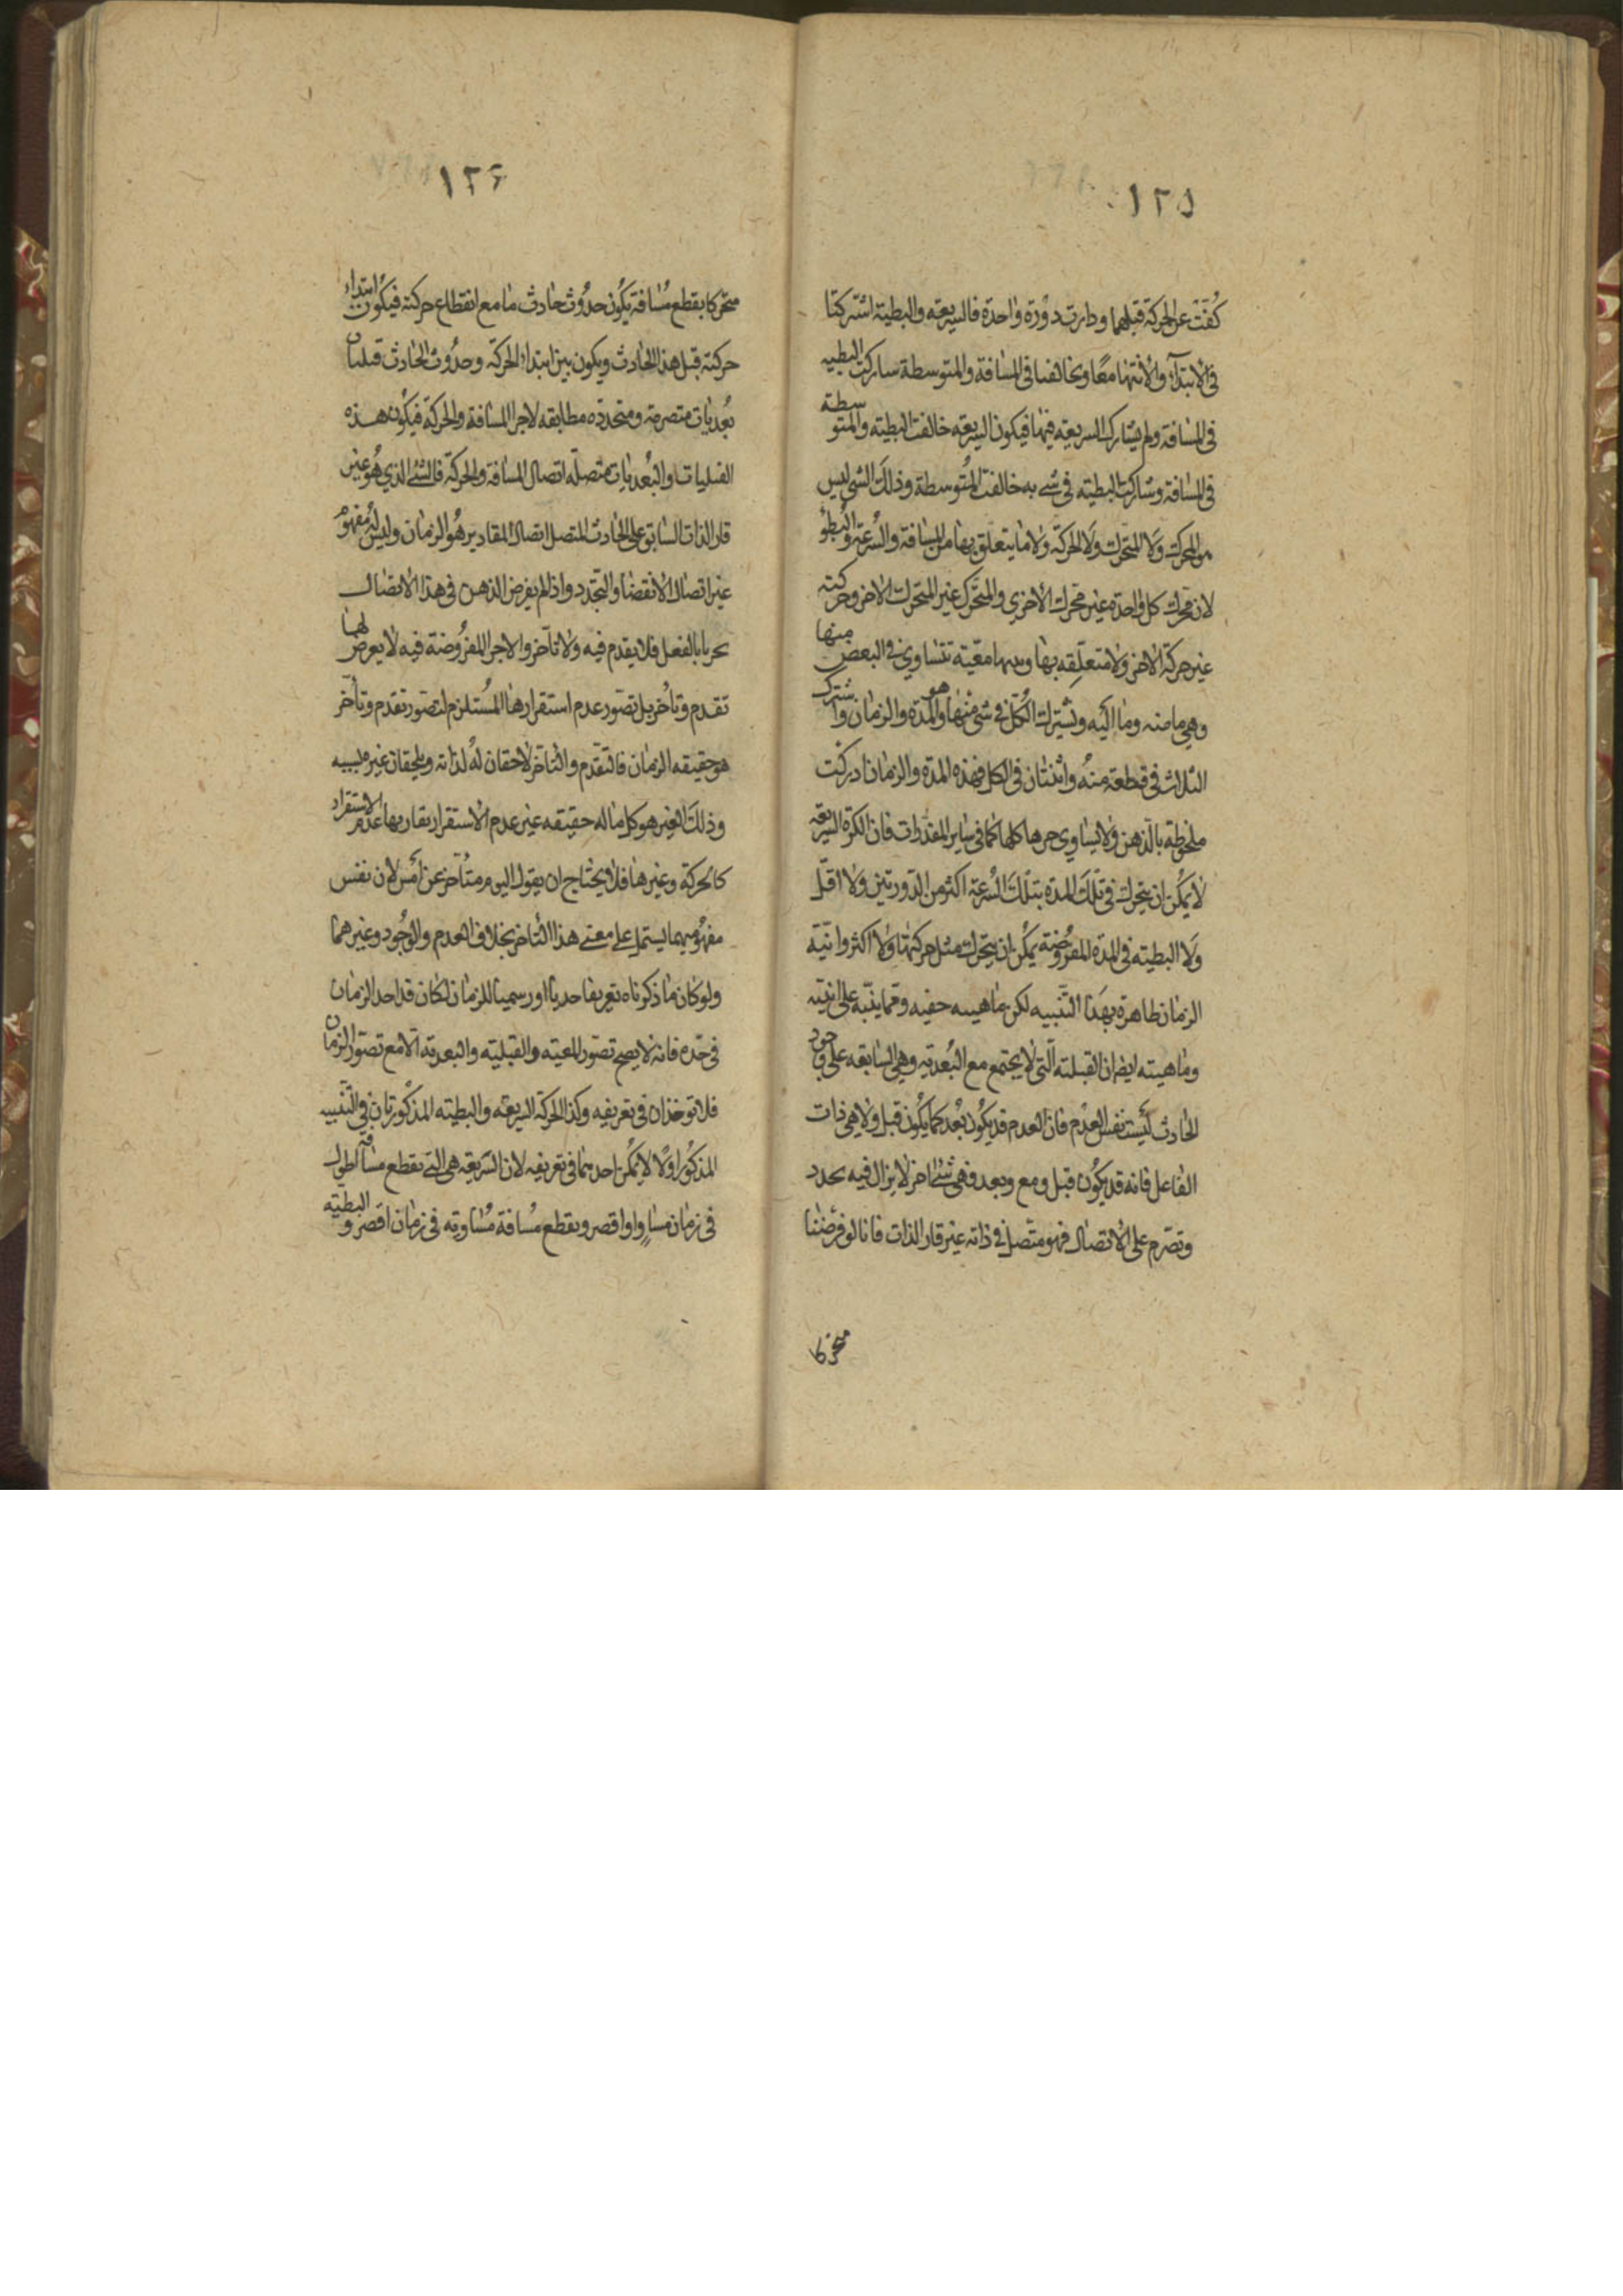 ١٢٥
كُفَتْ عن الحركة قبلهما ودارت دورة واحدة فالسريعة والبطيئة اشتركتا
فى الابتدآء والانتهاء معًا وتخالفتا فى المسافة والمتوسطة شاركت البطيه
فى المسافة ولم يشارك السريعه فيها فيكون السريعه خالفت البطيئه والمتوسطة
فى المسافة وشاركت البطيئه فى شئ به خالفت المتوسطة وذلك الشى ليس
من المحرك ولا المتحرك ولا الحركة ولا ما يتعلق بها من المسافة والسرعة والبطؤ
لان محرك كل واحدة غير محرك الأخرى والمتحرك غير المتحرك الاخر وحركته
غير حركة الاخر ولا متعلقه بها وبينها معيّة تتساوى فى البعض منها
وهى ما منه وما اليه وتشترك الكل فى شئ منها هو المدة والزمان واشترك
الثلاث فى قطعة منه واثنتان فى الكل فهذه المدة والزمان ادركت
ملحوظة بالذهن ولا يساوى جزها كلها كما فى ساير المقدرات فان الكرة السريعه
لا يمكن ان يتحرك فى تلك المدة بتلك السرعة اكثر من الدورتين ولا اقل
ولا البطيئه فى المدة المفروضة يمكن ان يتحرك مثل حركتها ولا اكثر وانيّة
الزمان ظاهرة بهذا التنبيه لكن ماهيته خفيه ومما ينبه على انيته
وماهيته ايضا ان القبلية التى لا يجتمع مع البعدية وهى السابقه على وجود
الحادث ليست نفس العدم فان العدم قد يكون بعد كما يكون قبل ولا هى ذات
الفاعل فانه قد يكون قبل ومع وبعد فهى شئ اخر لا يزال فيه تجدد
وتصرم على الاتصال فهو متصل فى ذاته غير قار الذات فانا لو فرضنا
متحركا
١٢۶
متحركا يقطع مسافة يكون حدوث حادث ما مع انقطاع حركته فيكون ابتداء
حركته قبل هذا الحادث ويكون بين ابتداء الحركة وحدوث الحادث قبليات
بعديات متصرمة ومتجدده مطابقه لاجزا المسافة والحركة فيكون هذه
القبليات والبعديات متصلة اتصال المسافة والحركة فالشئ الذى هو غير
قار الذات السابق على الحادث المتصل اتصال المقادير هو الزمان وليس له مفهوم
غير اتصال الانقضا والتجدد واذا لم يفرض الذهن فى هذا الاتصال
تجزيا بالفعل فلا يقدم فيه ولا تأخر والاجزا المفروضة فيه لا يعرض لهما
تقدم وتأخر بل تصور عدم استقرارها المستلزم لتصور تقدم وتأخر
هو حقيقه الزمان فالتقدم والتأخر لاحقان له لذاته ويلحقان غيره بسببه
وذلك الغير هو كل ما له حقيقه غير عدم الاستقرار يقاربها عدم الاستقرار
كالحركة وغيرها فلا يحتاج ان يقول اليوم متأخر عن امس لان نفس
مفهوميهما يشتمل على معنى هذا التأخر بخلاف العدم والوجود وغيرهما
ولو كان ما ذكرناه تعريفا حديا او رسميا للزمان لكان قد اخذ الزمان
فى حده فانه لا يصح تصور المعيه والقبليه والبعديه الا مع تصور الزمان
فلا توخذان فى تعريفه وكذا الحركة السريعة والبطيئه المذكورتان فى التنبيه
المذكور اولا لا يمكن اخذهما فى تعريفه لان السريعه هى التى تقطع مسافة اطول
فى زمان مساوٍ او اقصر ويقطع مسافة مساويه فى زمان اقصر والبطيئه